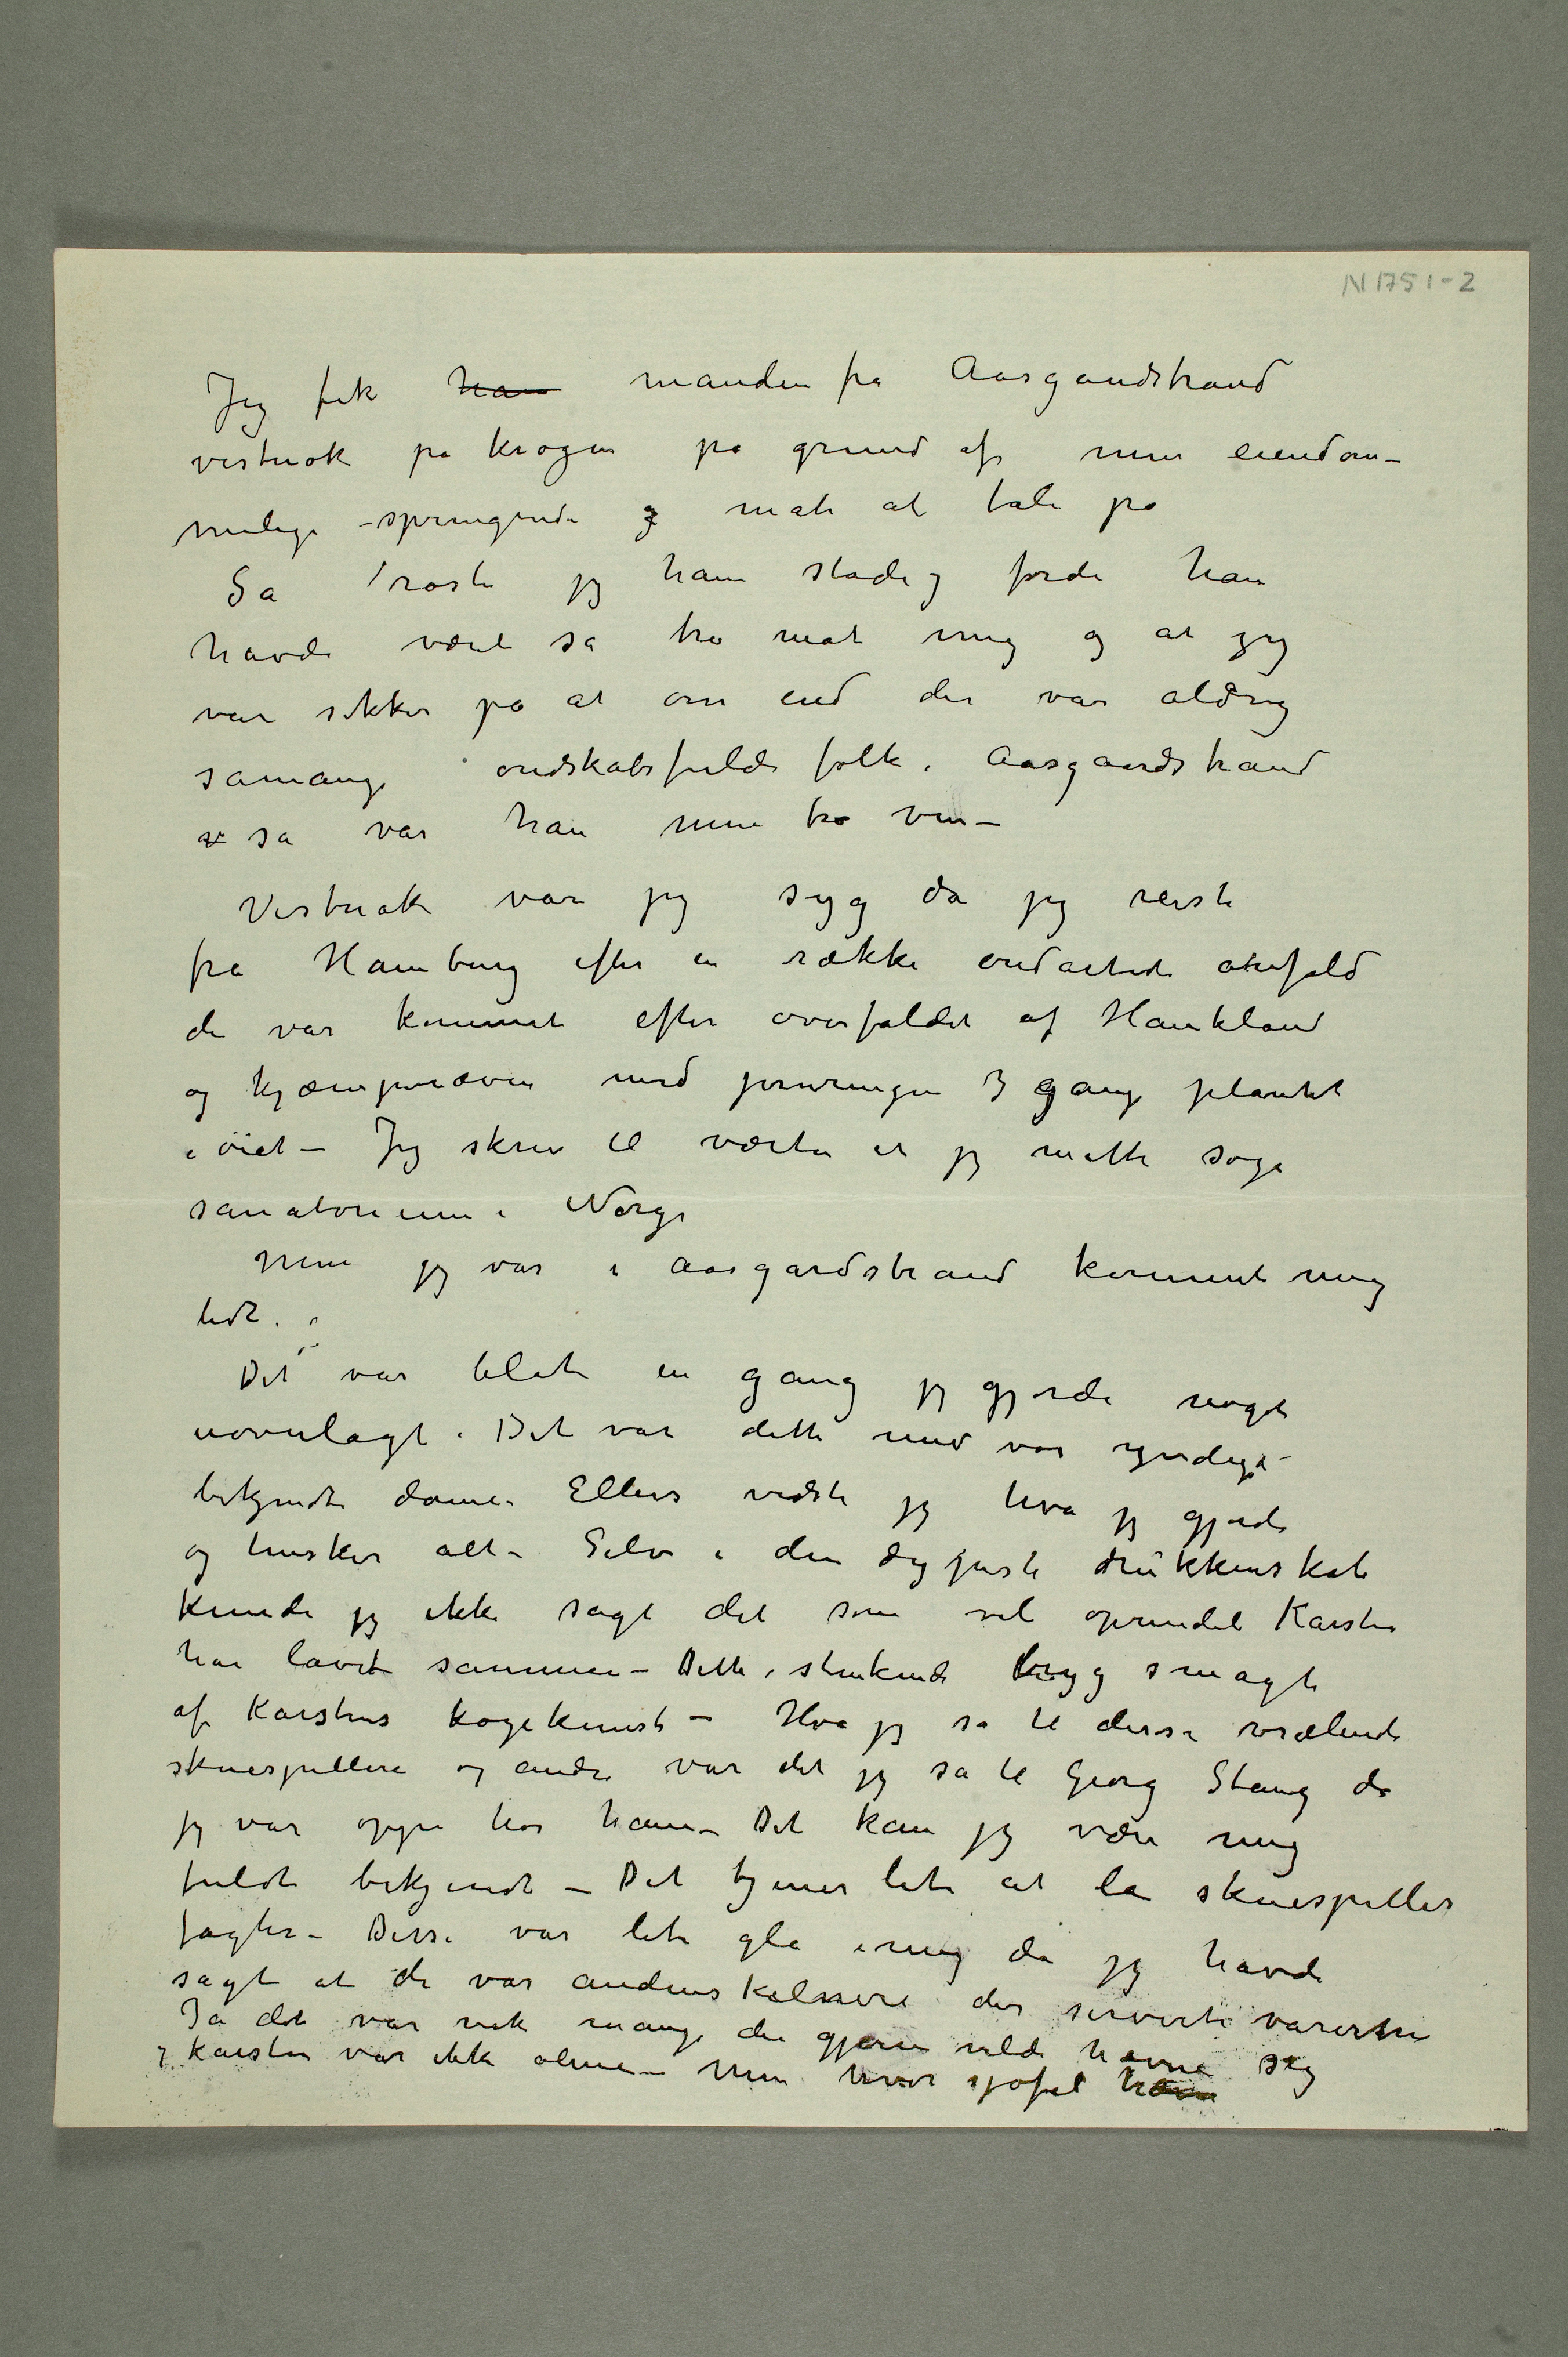 N 1751-2
Jeg fik han manden fra Aasgardstrand
vistnok på krogen på grund af min eiendom-
melige -springende og måte at tale på
Så roste jeg ham stadig fordi han
havde været så tro mot mig og at jeg
var sikker på at om end der var aldrig
samange ondskabsfulde folk i Aasgaardstrand
så var han min tro ven –
Vistnok var jeg syg da jeg reiste
fra Hamburg efter en række ondartede anfald
der var kommet efter overfaldet af Haukland
og kjæmpenæven med 3 gange plantet
i öiet – Jeg skrev til værten at jeg måtte søge
sanatorium i Norge
Men jeg var i Aasgardstrand kommet mig
lidt.
Det var blot en gang jeg gjorde noget
uoverlagt. Det var dette med vor yndige
bekjendte dame. Ellers vidste jeg hva jeg gjorde
og husker alt – Selv i den dypeste drukkenskab
kunde jeg ikke sagt det som vel oprindel Karsten
har lavet sammen – Dette stinkende bryg smagte
af Karstens kogekunst – Hva jeg sa til disse vrælende
skuespillere og andre var det jeg sa til Georg Stang da
jeg var oppe hos ham – Det kan jeg være mig
fuldt bekjendt – Det tjener lite at la skuespiller
fagter – Disse var lite gla i mig da jeg havde
sagt at de var åndens kelnere der serverte varerne
Ja det var nok mange der gjerne vilde hævne sig
og Karsten var ikke alene – Men hvor sjofel hævn